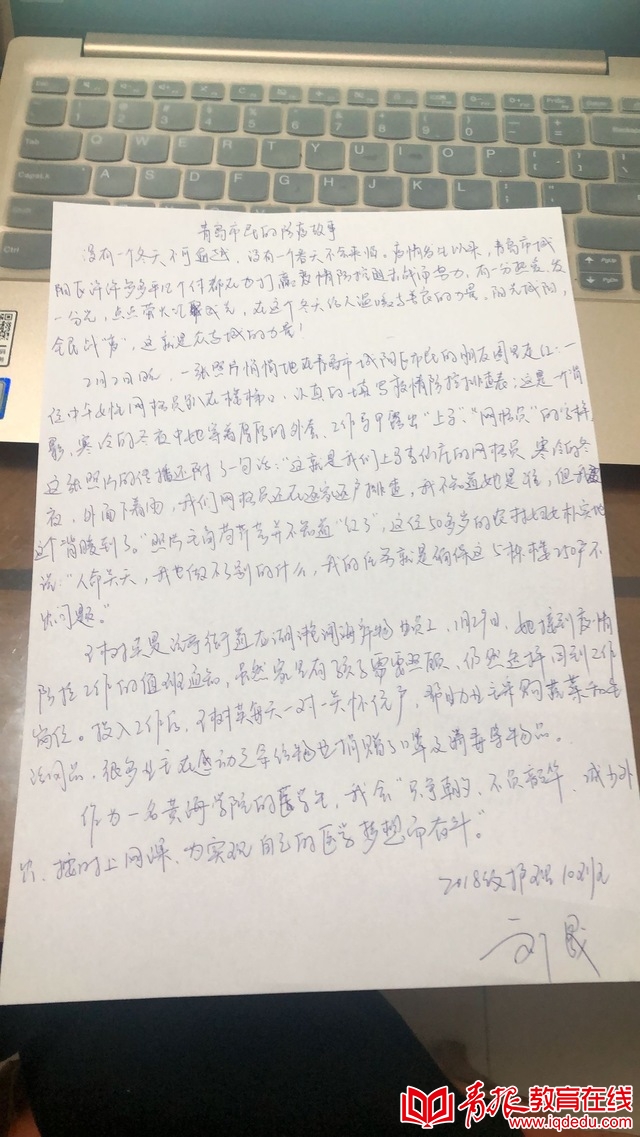 青岛市民的防疫故事
没有一个冬天不可逾越，没有一个春天不会来临。疫情发生以来，青岛市城
阳区许许多多平凡个体都在为打赢疫情防控阻击战而努力，有一分热，发
一分光，点点萤火汇聚成光，在这个冬天给人温暖与善良的力量。阳光城阳，
全民战"疫"，这就是在身边的力量！
2月2日晚，一张照片悄悄地在青岛市城阳区市民的朋友圈里走红：一
位中年女性网格员趴在楼梯口，认真的填写疫情防控排查表；这是一张背
影，寒冷的冬夜中她穿着厚厚的外套、工作马甲露出"上马"、"网格员"的字样，
这张照片的传播还附了一句话："这就是我们上马李仙庄的网格员，寒冷的冬
夜，外面下着雨，我们网格员还在逐家逐户排查，我不知道她是谁，但我被
这个背影暖到了。"照片主角苟苹苹并不知道"红了"，这位50多岁的农村妇女朴实地
说："人命关天，我也做不了别的什么，我的任务就是确保这5栋楼250户不
出问题。"
王树英是流亭街道 物业员工，1月29日，她接到疫情
防控工作的值班通知，虽然家里有孩子需要照顾，仍然选择回到工作
岗位。投入工作后，王树英每天一对一关怀住户，帮助业主采购蔬菜和生
活用品，很多业主在感动之余给物业捐赠了口罩及消毒等物品。
作为一名黄海学院的医学生，我会"只争朝夕，不负韶华，减少外
出、按时上网课，为实现自己的医学梦想而奋斗。"
2018级护理10班
刘晟
青报教育在线
www.iqdedu.com
Tab
CapsLock
Shift
Q
W
E
R
T
Y
U
I
O
P
Backspace
PgUp
PgDn